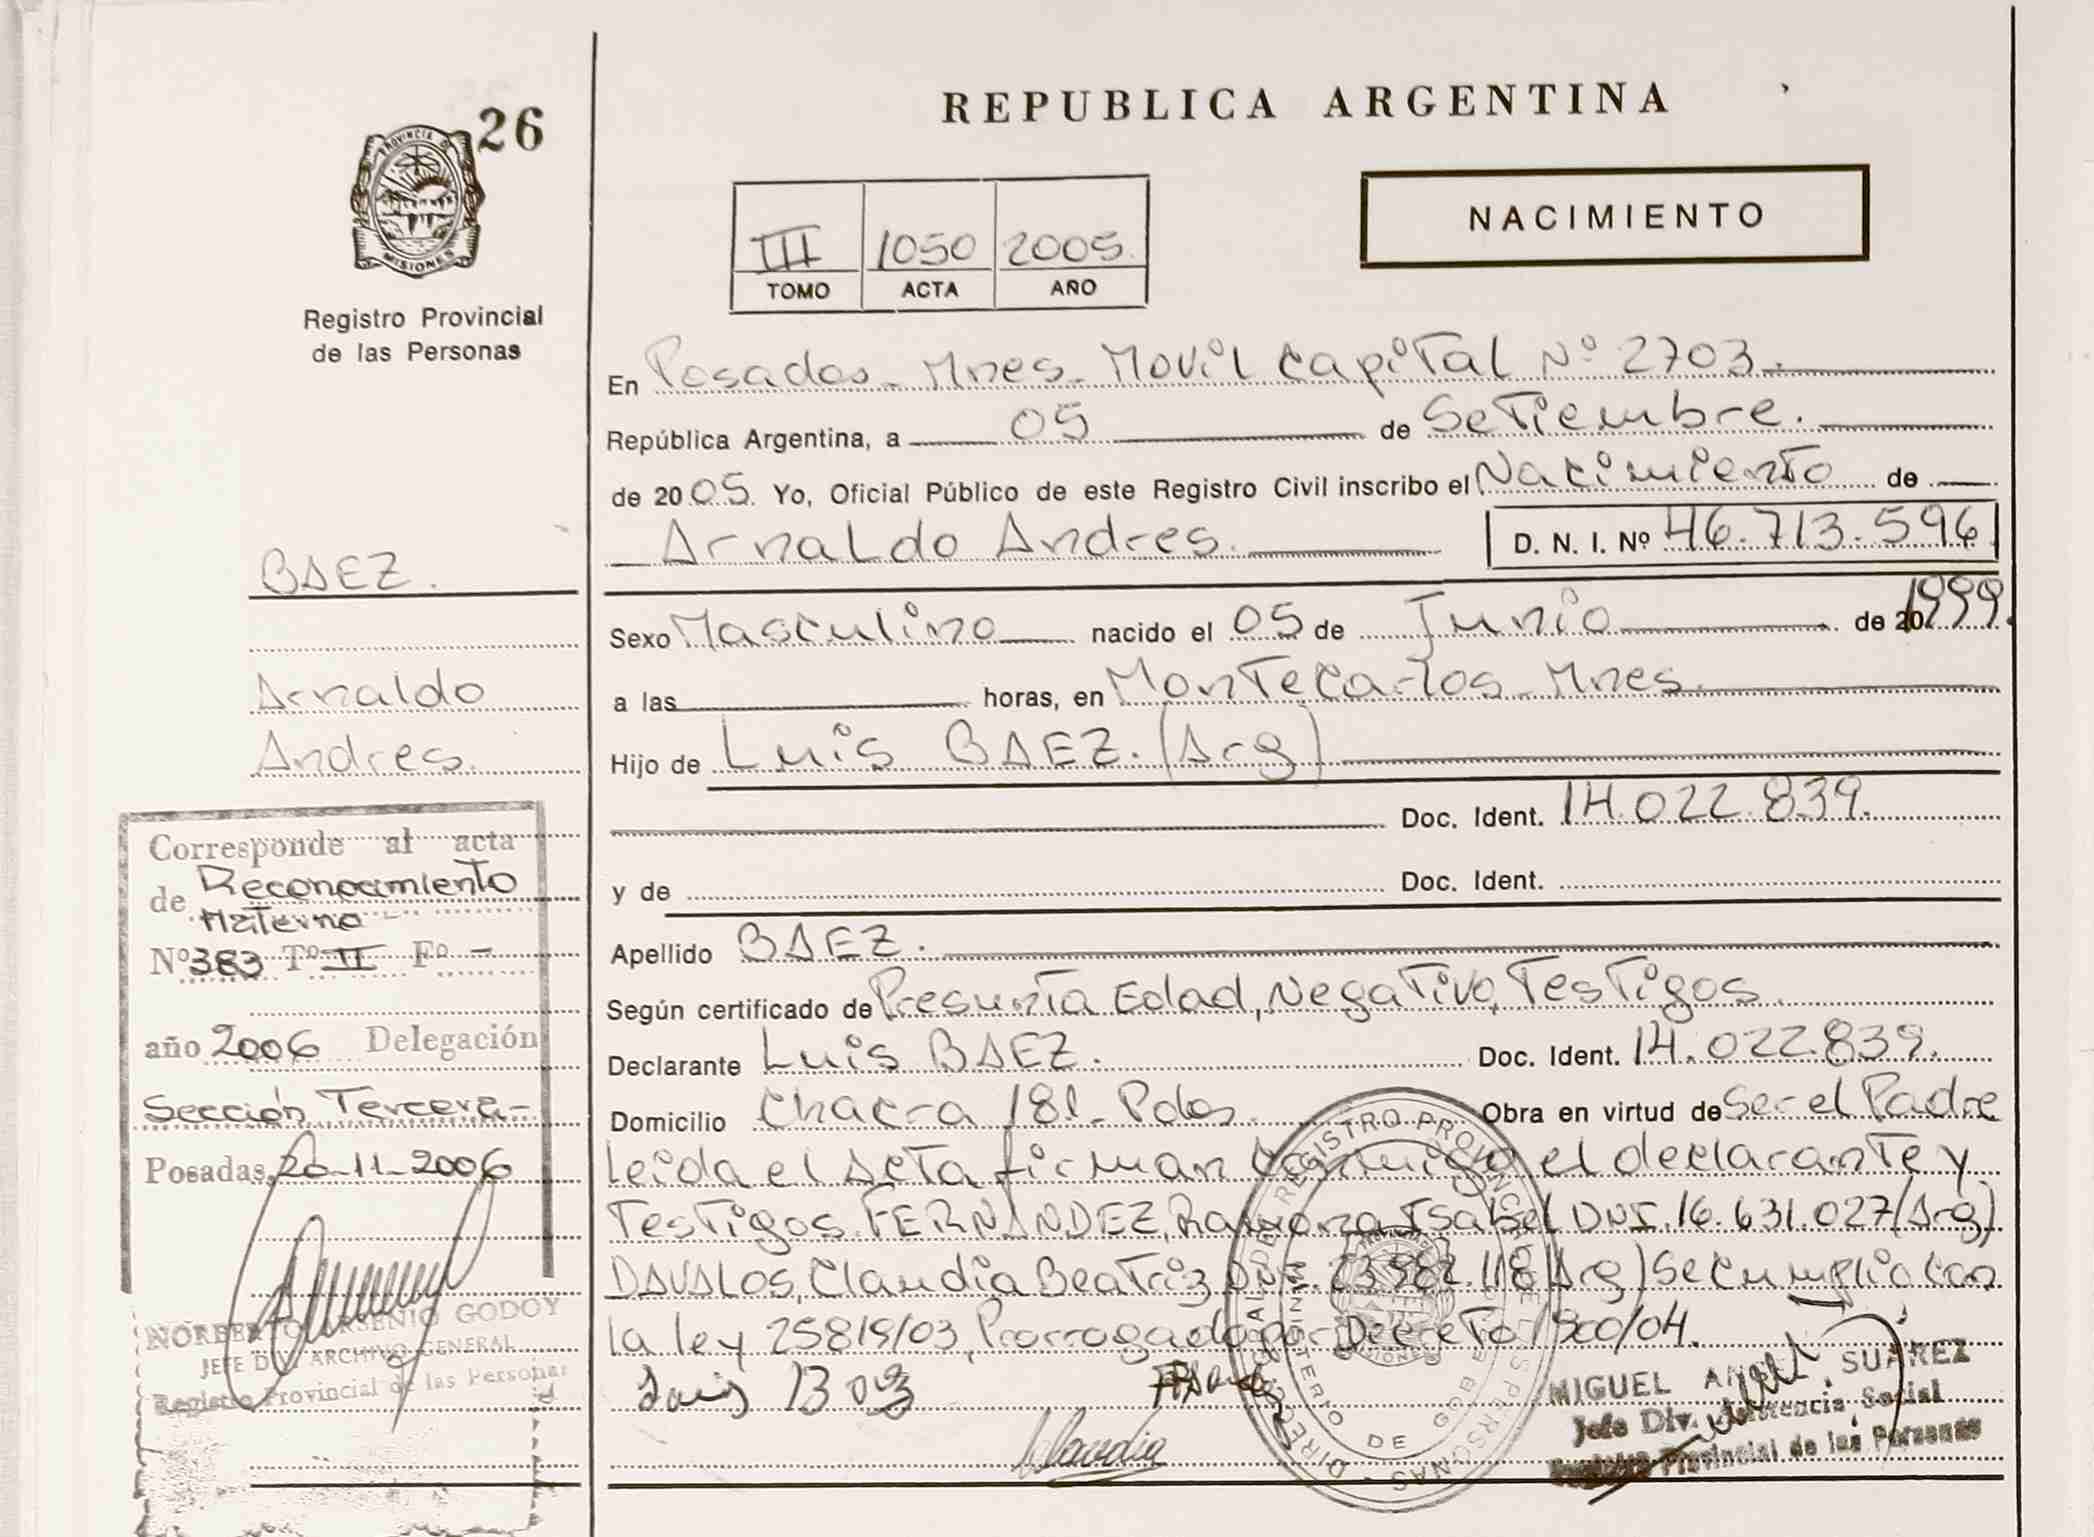 26
PROVINCIA DE
MISIONES
Registro Provincial
de las Personas
REPUBLICA ARGENTINA
NACIMIENTO
III 1050 2005
TOMO ACTA AÑO
En Posadas - Mnes - Movil Capital Nº 2703.
República Argentina, a 05 de Setiembre.
de 2005. Yo, Oficial Público de este Registro Civil inscribo el Nacimiento de
Arnaldo Andres. D. N. I. Nº 46.713.596
Sexo Masculino nacido el 05 de Junio de 20 1999.
a las horas, en Montecarlos - Mnes.
Hijo de Luis BAEZ. (Arg)
Doc. Ident. 14.022.839.
y de Doc. Ident.
Apellido BAEZ.
Según certificado de Presunta Edad, Negativo, Testigos.
Declarante Luis BAEZ. Doc. Ident. 14.022.839.
Domicilio Chacra 181 - Pdas. Obra en virtud de Ser el Padre
Leida el Acta firman conmigo el declarante y
Testigos. FERNANDEZ, Ramona Isabel DNI. 16.631.027 (Arg)
DAVALOS, Claudia Beatriz DNI. 23.982.118 (Arg) Se cumplio con
la ley 25819/03, Prorrogado por Decreto 1900/04.
Luis
Claudia
MIGUEL ANGEL SUAREZ
Jefe Div. Social
Registro Provincial de las Personas
BAEZ.
Arnaldo
Andres.
Corresponde al acta
de Reconocimiento
Materno
Nº 383 Tº II Fº -
año 2006 Delegación
Sección Tercera -
Posadas, 20-11-2006
NORBERTO ARSENIO GODOY
JEFE DIV. ARCHIVO GENERAL
Registro Provincial de las Personas